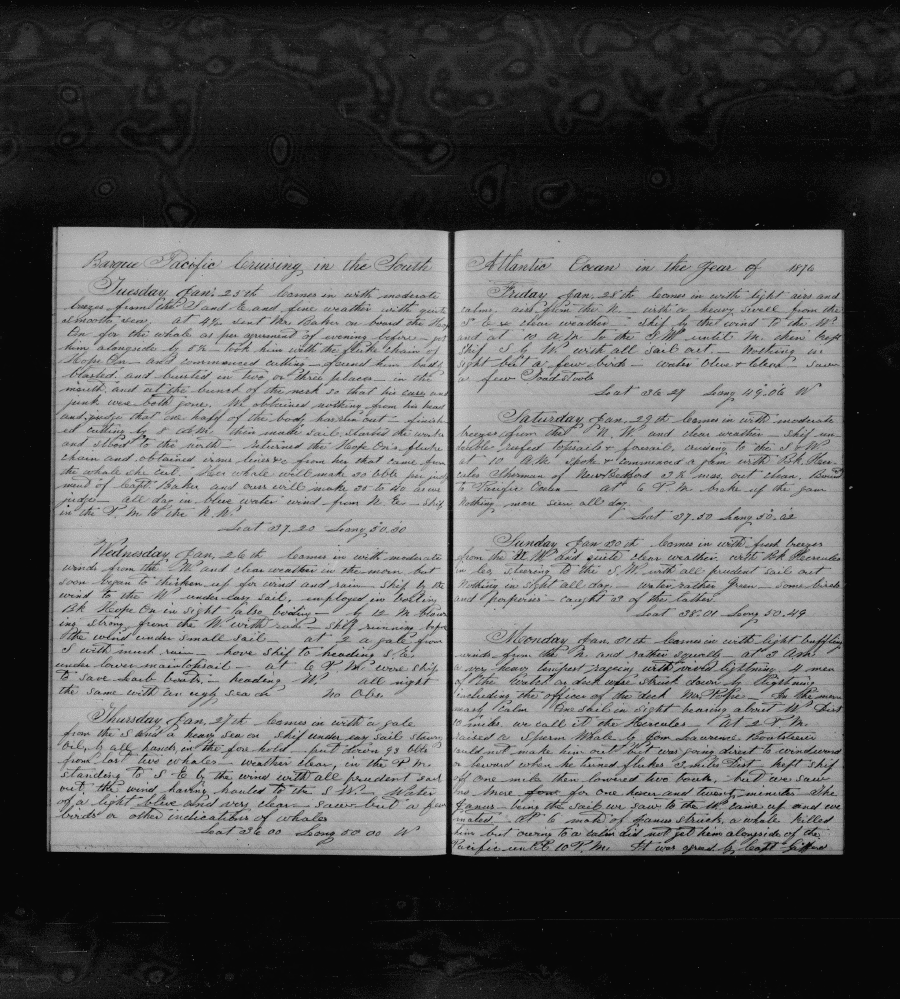 Barque Pacific Cruising in the South
Tuesday Jan. 25th Comes in with moderate
breezes from the S and E and fine weather with quite
smooth sea. at 4½ sent Mr Baker on board the Hope
On for the whale as per agreement of evening before - got
him alongside by 5½ - took him with the fluke chain of
Hope On - and commenced cutting - found him badly
blasted and bursted in two or three places - in the
mouth and at the bunch of the neck so that his case and
junk was both gone. We obtained nothing from his head
and judge that one half of the body has run out - finish
ed cutting by 8 A.M. then made sail, started the works
and stood to the north - returned the Hope On's fluke
chain and obtained some lines &c from his that came from
the whale she cut. Her whale will make 50 bbls per judg
ment of Capt. Baker and ours will make 35 to 40 as we
judge - all day in blue water wind from N. E. - ship
in the P. M. to the N. W.
Lat 37.20 Long 50.50
Wednesday Jan, 26th Comes in with moderate
winds from the W and clear weather in the morn, but
soon began to thicken up for wind and rain - ship by the
wind to the W under easy sail, employed in boiling
Bk Hope On in sight also boiling - by 12 M blow
ing strong from the W with rain - ship running before
the wind under small sail - at 2 a gale from
S with much rain - hove ship to heading S.E.
under lower maintopsail - at 6 P. M. wore ship
to save larb boats - heading W. all night
the same with an ugly sea on No Obs.
Thursday Jan, 27th Comes in with a gale
from the S and a heavy sea on ship under easy sail stowing
oil, by all hands, in the fore hold - put down 93 bbls
from last two whales - weather clear, in the P. M.
standing to S. E by the wind with all prudent sail
out, the wind having hauled to the S W - Water
of a light blue and very clear - saw but a few
birds or other indications of whales
Lat 36 00 Long 50 00 W
Atlantic Ocean in the Year of 1876
Friday Jan, 28th Comes in with light airs and
calms, airs from the N - with a heavy swell from the
S E & clear weather - ship by the wind to the W
and at 10 A M to the S W until M. then kept
ship S by W. with all sail out. - Nothing in
sight but a few birds - water blue & clear saw
a few Toad Stools
Lat 36 29 Long 49.06 W
Saturday Jan, 29th Comes in with moderate
breezes from the N. W. and clear weather - ship un
double reefed topsails & foresail, cruising to the S & W
at 10 A.M. spoke & commenced a gam with Bk Her
cules Allerman of New Bedford 3½ mos. out clean. Bound
to Pacific Ocean - at 6 P M broke up the gam
Nothing more seen all day
Lat 37.50 Long 50.02
Sunday Jan 30th Comes in with fresh breezes
from the N. W. and quite clear weather with Bk Hercules
in Co, steering to the S. W with all prudent sail out
Nothing in sight all day - water rather green - some birds
and porpoises - caught 3 of the latter
Lat 38.01 Long 50.49
Moonday Jan. 31th Comes in with light baffling
winds from the N. and rather squally - at 3 A.M.
a very heavy tempest raging with vivid lightning, 4 men
of the watch on deck were struck down by Lightning
including the officer of the deck Mr Pope - In the morn
nearly Calm One sail in sight bearing about W Dist
10 miles, we call it the Hercules - At 2 P M.
raised a Sperm Whale by Tom Lawrence Boatsteerer
could not make him out but was going direct to windward
or leeward when he turned flukes 3 miles Dist - kept ship
off one mile then lowered two boats, - but we saw
no more for one hour and twenty minutes The
Janus - being the sail we saw to the W. came up and we
mated. At 6 mate of Janus struck a whale killed
him but owing to a calm did not get him alongside of the
Pacific until 10 P. M. It was agreed by Capt